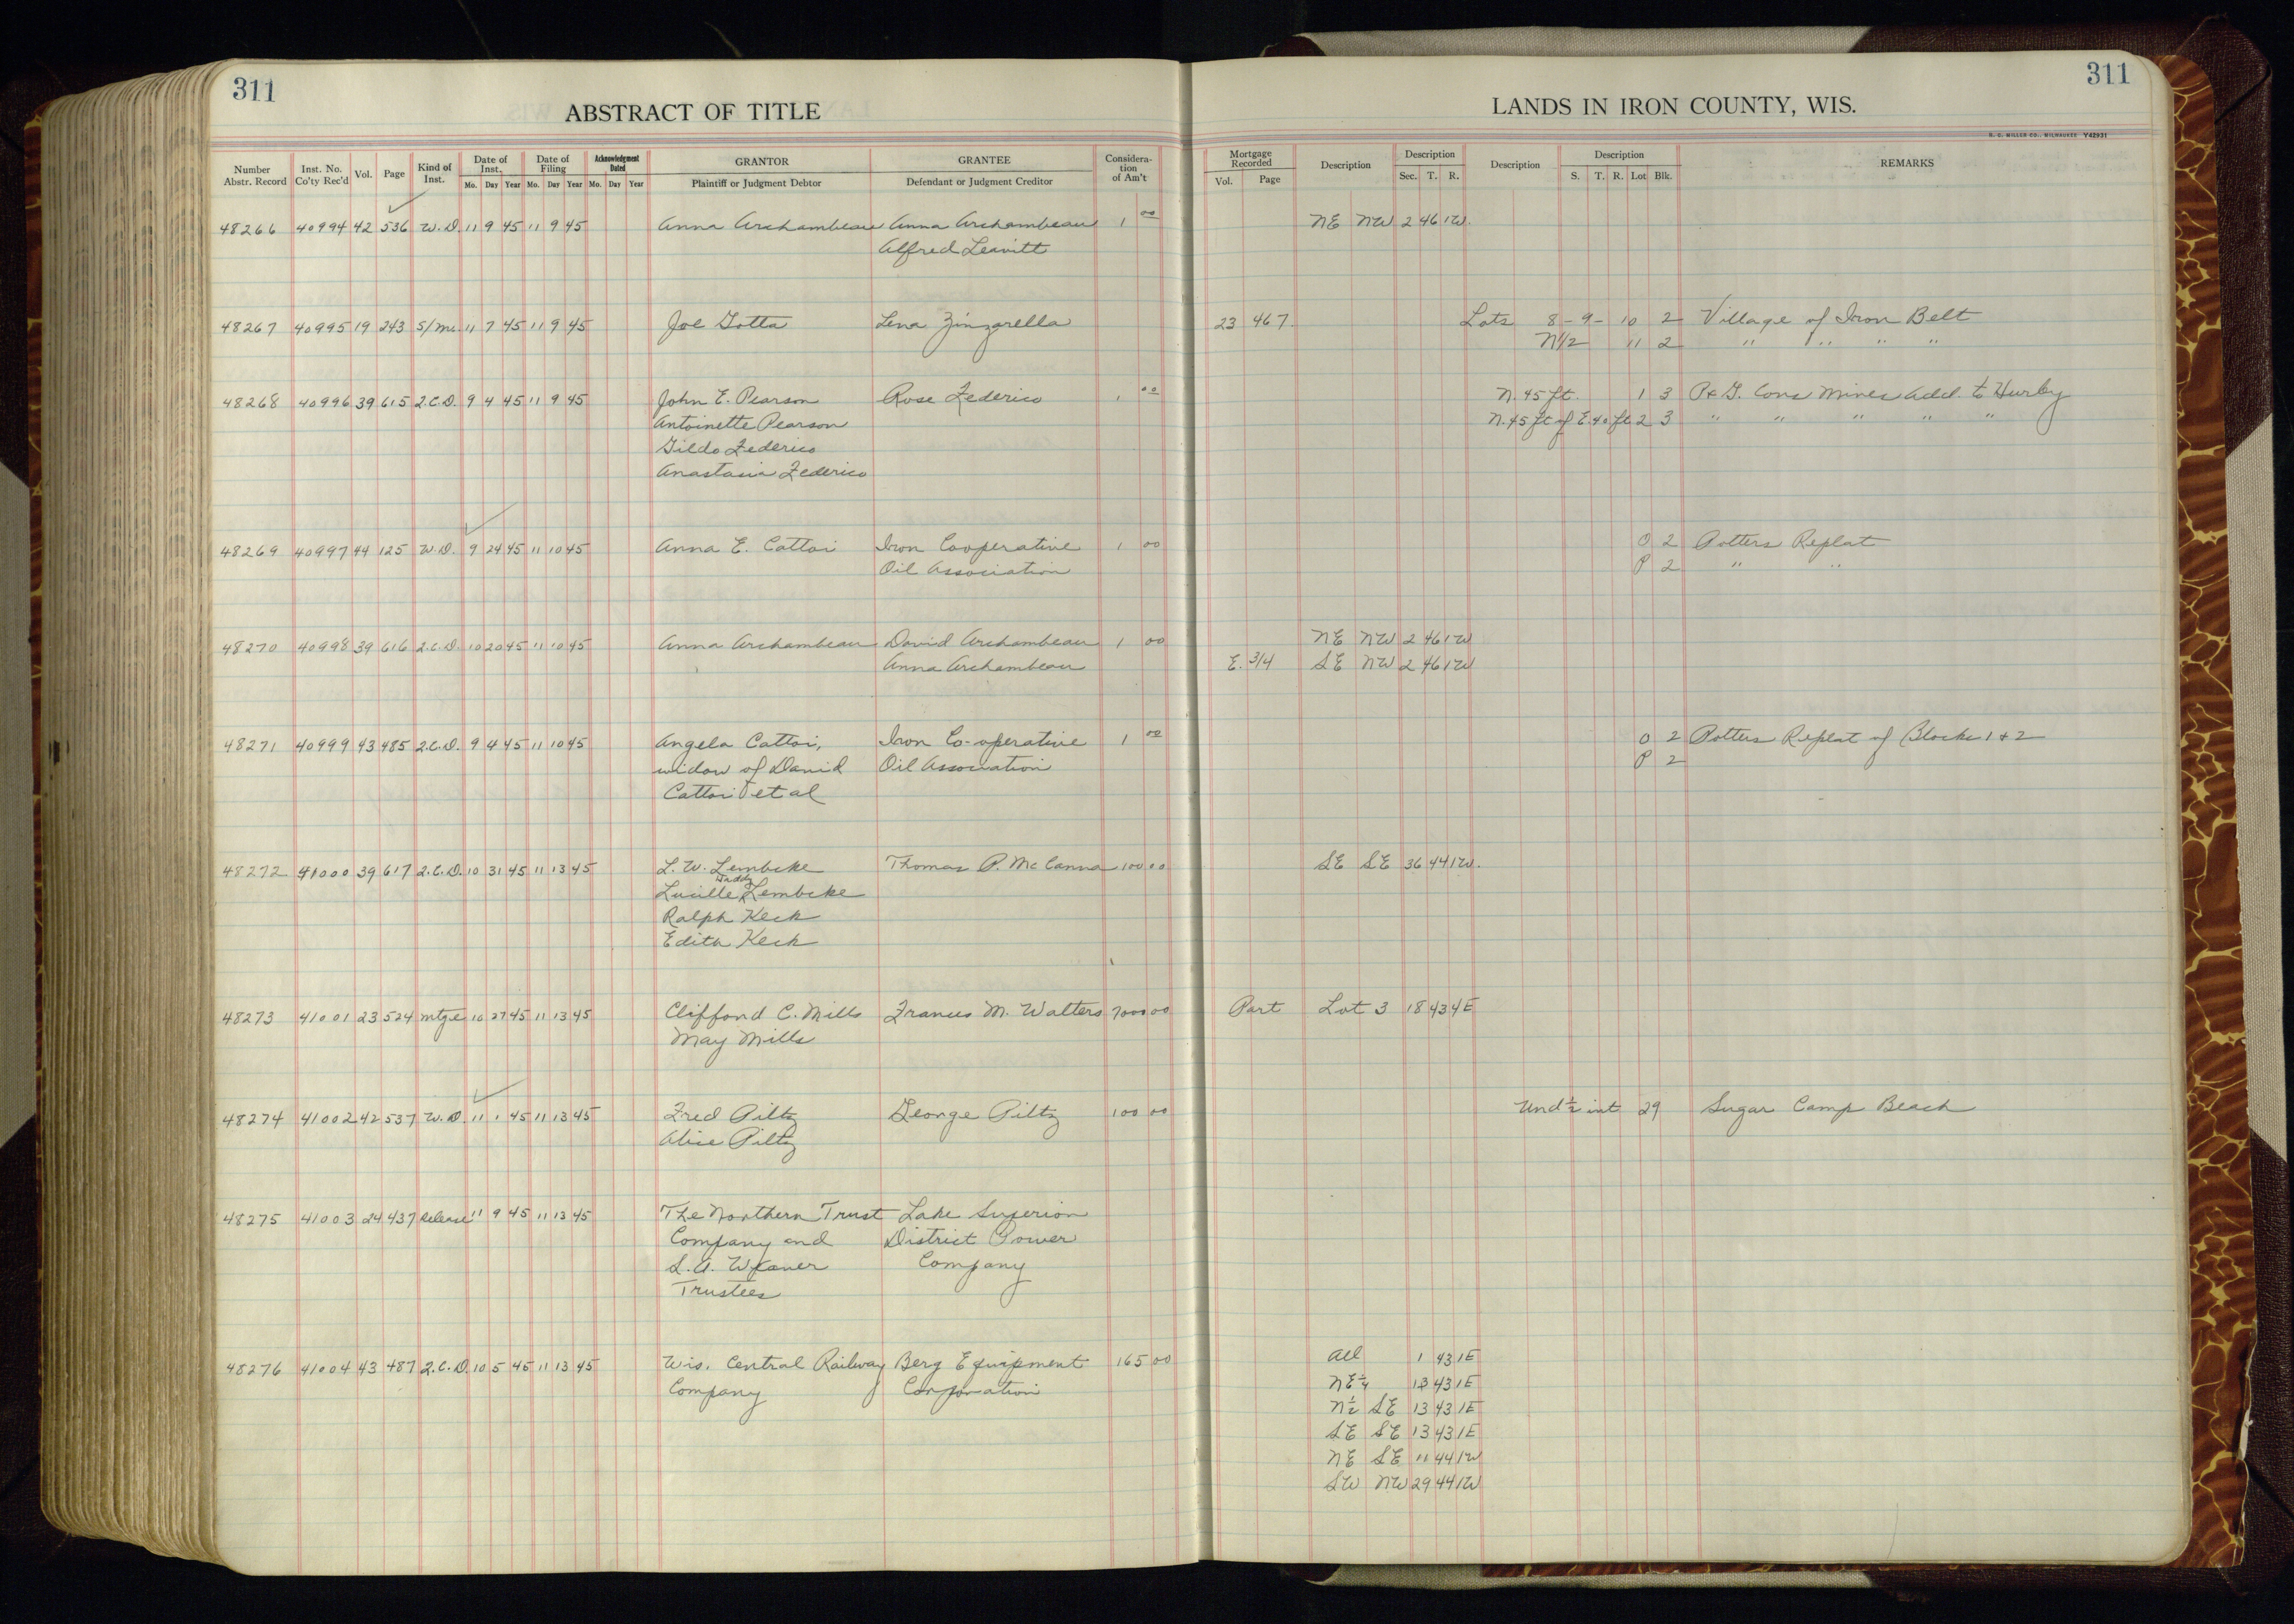 311
ABSTRACT OF TITLE
Number Abstr. Record Inst. No. Co'ty Rec'd Vol. Page Kind of Inst. Date of Inst. Mo. Day Year Date of Filing Mo. Day Year Acknowledgment Dated Mo. Day Year GRANTOR Plaintiff or Judgment Debtor GRANTEE Defendant or Judgment Creditor Considera-tion of Am't
48266 40994 42 536 W.D. 11 9 45 11 9 45 Anna Archambeau Anna Archambeau 1 00
Alfred Leavitt
48267 40995 19 243 S/M. 11 7 45 11 9 45 Joe Gotta Lena Zinzarella
48268 40996 39 615 Q.C.D. 9 4 45 11 9 45 John E. Pearson Rose Federico 1 00
Antoinette Pearson
Gildo Federico
Anastasia Federico
48269 40997 44 125 W.D. 9 24 45 11 10 45 Anna E. Cattoi Iron Cooperative 1 00
Oil Association
48270 40998 39 616 Q.C.D. 10 20 45 11 10 45 Anna Archambeau David Archambeau 1 00
Anna Archambeau
48271 40999 43 485 Q.C.D. 9 4 45 11 10 45 Angela Cattoi, Iron Co-operative 1 00
widow of David Oil Association
Cattoi et al
48272 41000 39 617 Q.C.D. 10 31 45 11 13 45 L. W. Lembcke Thomas P. McCanna 100 00
Lucille Lembcke
Ralph Keck
Edith Keck
48273 41001 23 524 Mtge 10 27 45 11 13 45 Clifford C. Mills Frances M. Walters 7000 00
May Mills
48274 41002 42 537 W.D. 11 1 45 11 13 45 Fred Piltz George Piltz 100 00
Alice Piltz
48275 41003 24 437 Release 11 9 45 11 13 45 The Northern Trust Lake Superior
Company and District Power
Company
Trustees
48276 41004 43 487 Q.C.D. 10 5 45 11 13 45 Wis. Central Railway Berg Equipment 165 00
Company Corporation
311
LANDS IN IRON COUNTY, WIS.
H. C. MILLER CO., MILWAUKEE Y42931
Mortgage Recorded Vol. Page Description Description Sec. T. R. Description Description S. T. R. Lot Blk. REMARKS
NE NW 2 46 1W.
23 467. Lots 8-9- 10 2 Village of Iron Belt
N1/2 11 2 " " " "
N. 45 ft. 1 3 P & G. Cons Mines Add. to Hurley
N. 45 ft of E. 40 ft 2 3 " " " " "
O 2 Potters Replat
P 2 " "
NE NW 2 46 1W
E. 3/4 SE NW 2 46 1W
O 2 Potters Replat of Blocks 1 & 2
P 2
SE SE 36 44 1W.
Part Lot 3 18 43 4E
Und 1/2 int 29 Sugar Camp Beach
All 1 43 1E
NE 1/4 13 43 1E
N 1/2 SE 13 43 1E
SE SE 13 43 1E
NE SE 11 44 1W
SW NW 29 44 1W